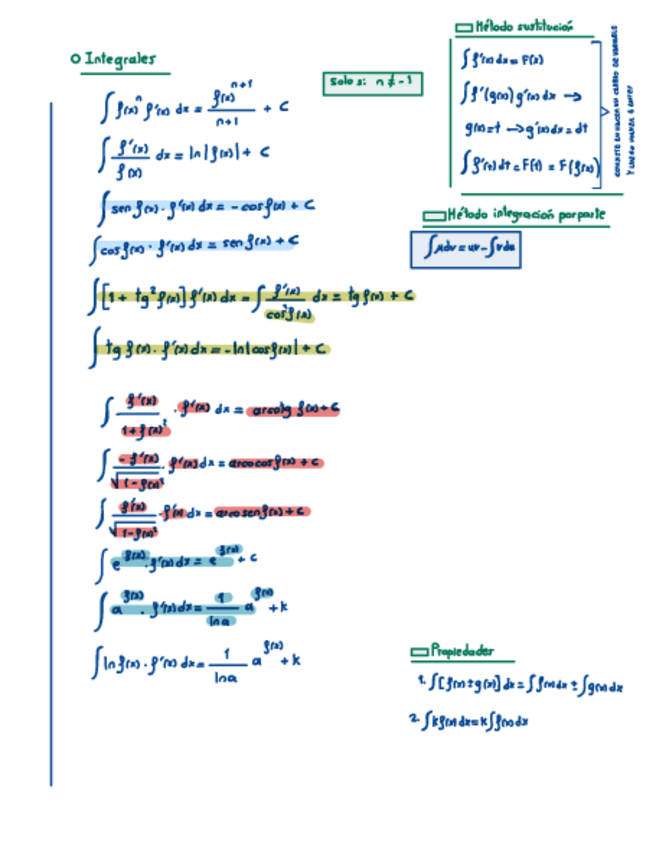 Integrales
∫ f(x)ⁿ f'(x) dx = f(x)ⁿ⁺¹ / n+1 + C
Solo si: n ≠ -1
∫ f'(x) / f(x) dx = ln|f(x)| + C
∫ sen f(x) · f'(x) dx = - cos f(x) + C
∫ cos f(x) · f'(x) dx = sen f(x) + C
∫ [1 + tg² f(x)] f'(x) dx = ∫ f'(x) / cos² f(x) dx = tg f(x) + C
∫ tg f(x) · f'(x) dx = - ln|cos f(x)| + C
∫ f'(x) / 1 + f(x)² · f'(x) dx = arcotg f(x) + C
∫ - f'(x) / √1 - f(x)² · f'(x) dx = arcocos f(x) + C
∫ f'(x) / √1 - f(x)² · f'(x) dx = arcosen f(x) + C
∫ e^f(x) · f'(x) dx = e^f(x) + C
∫ a^f(x) · f'(x) dx = 1 / ln a a^f(x) + k
∫ ln f(x) · f'(x) dx = 1 / ln a a^f(x) + k
Método sustitución
∫ f'(x) dx = F(x)
∫ f'(g(x)) g'(x) dx →
g(x) = t → g'(x) dx = dt
∫ f'(t) dt = F(t) = F(g(x))
CONSISTE EN HACER UN CAMBIO DE VARIABLE
Y LUEGO
Método integración por parte
∫ u dv = uv - ∫ v du
Propiedades
1. ∫ [f(x) ± g(x)] dx = ∫ f(x) dx ± ∫ g(x) dx
2. ∫ k f(x) dx = k ∫ f(x) dx